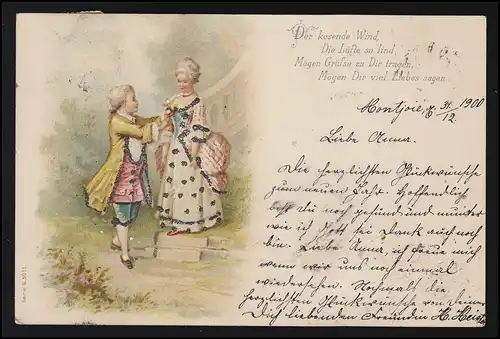 Der kosende Wind,
Die Lüfte so lind,
Mögen Grüße zu Dir tragen,
Mögen Dir viel Liebes sagen.
Montjoie, 31/12. 1900
Liebe Anna.
Die herzlichsten Glückwünsche
zum neuen Jahr. Hoffendlich
bist du noch gesund und munter
wie ich Gott sei Dank auch noch
bin. Liebe Anna, ich freue mich
wenn wir uns noch einmal
wiedersehen. Nochmals die
herzlichsten Glückwünsche von Deiner
Dich liebenden Freundin H.
Serie